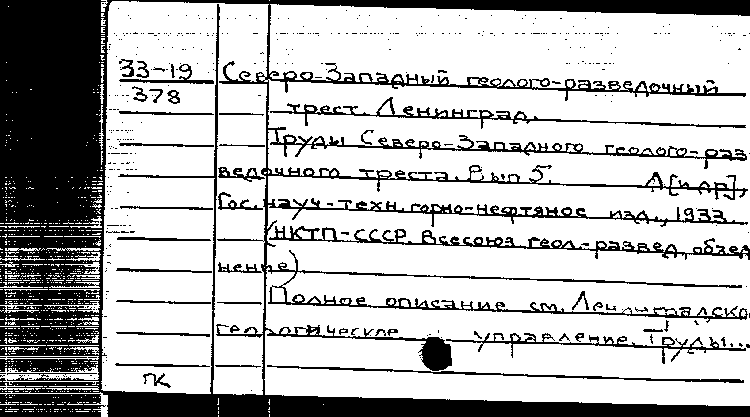 33-19 Северо-Западный геолого-разведочный
378 трест. Ленинград.
Труды Северо-Западного геолого-раз
ведочного треста. Вып 5. Л[и др],
Гос. науч-техн. горно-нефтяное изд., 1933.
(НКТП-СССР. Всесоюз геол-развед, объед
нение)
Полное описание см. Ленинградско
геологическое управление. Труды...
ПК